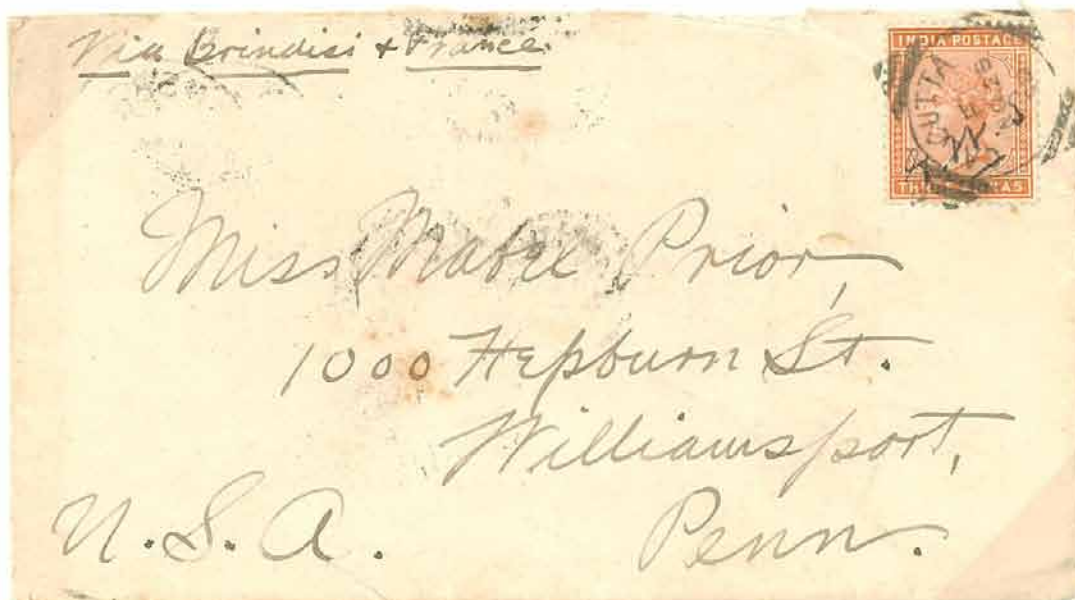 Via Brindisi & France.
INDIA POSTAGE
CUTTA
Miss Mabel Prior,
1000 Hepburn St.
Williamsport,
U.S.A. Penn.